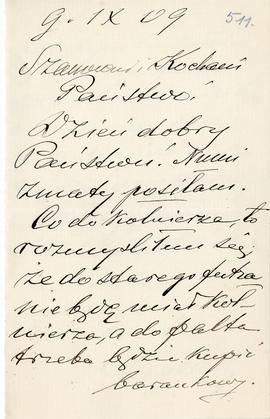 9. IX 09
511.
Szanowni i Kochani
Państwo!
Dzień dobry
Państwu! Numi
zmaty posiłam.
Co do kołnierza, to
rozmyśliłem się,
że do starego futra
nie będę miał koł-
nierza, a do palta
trzeba będzie kupić
barankowy.